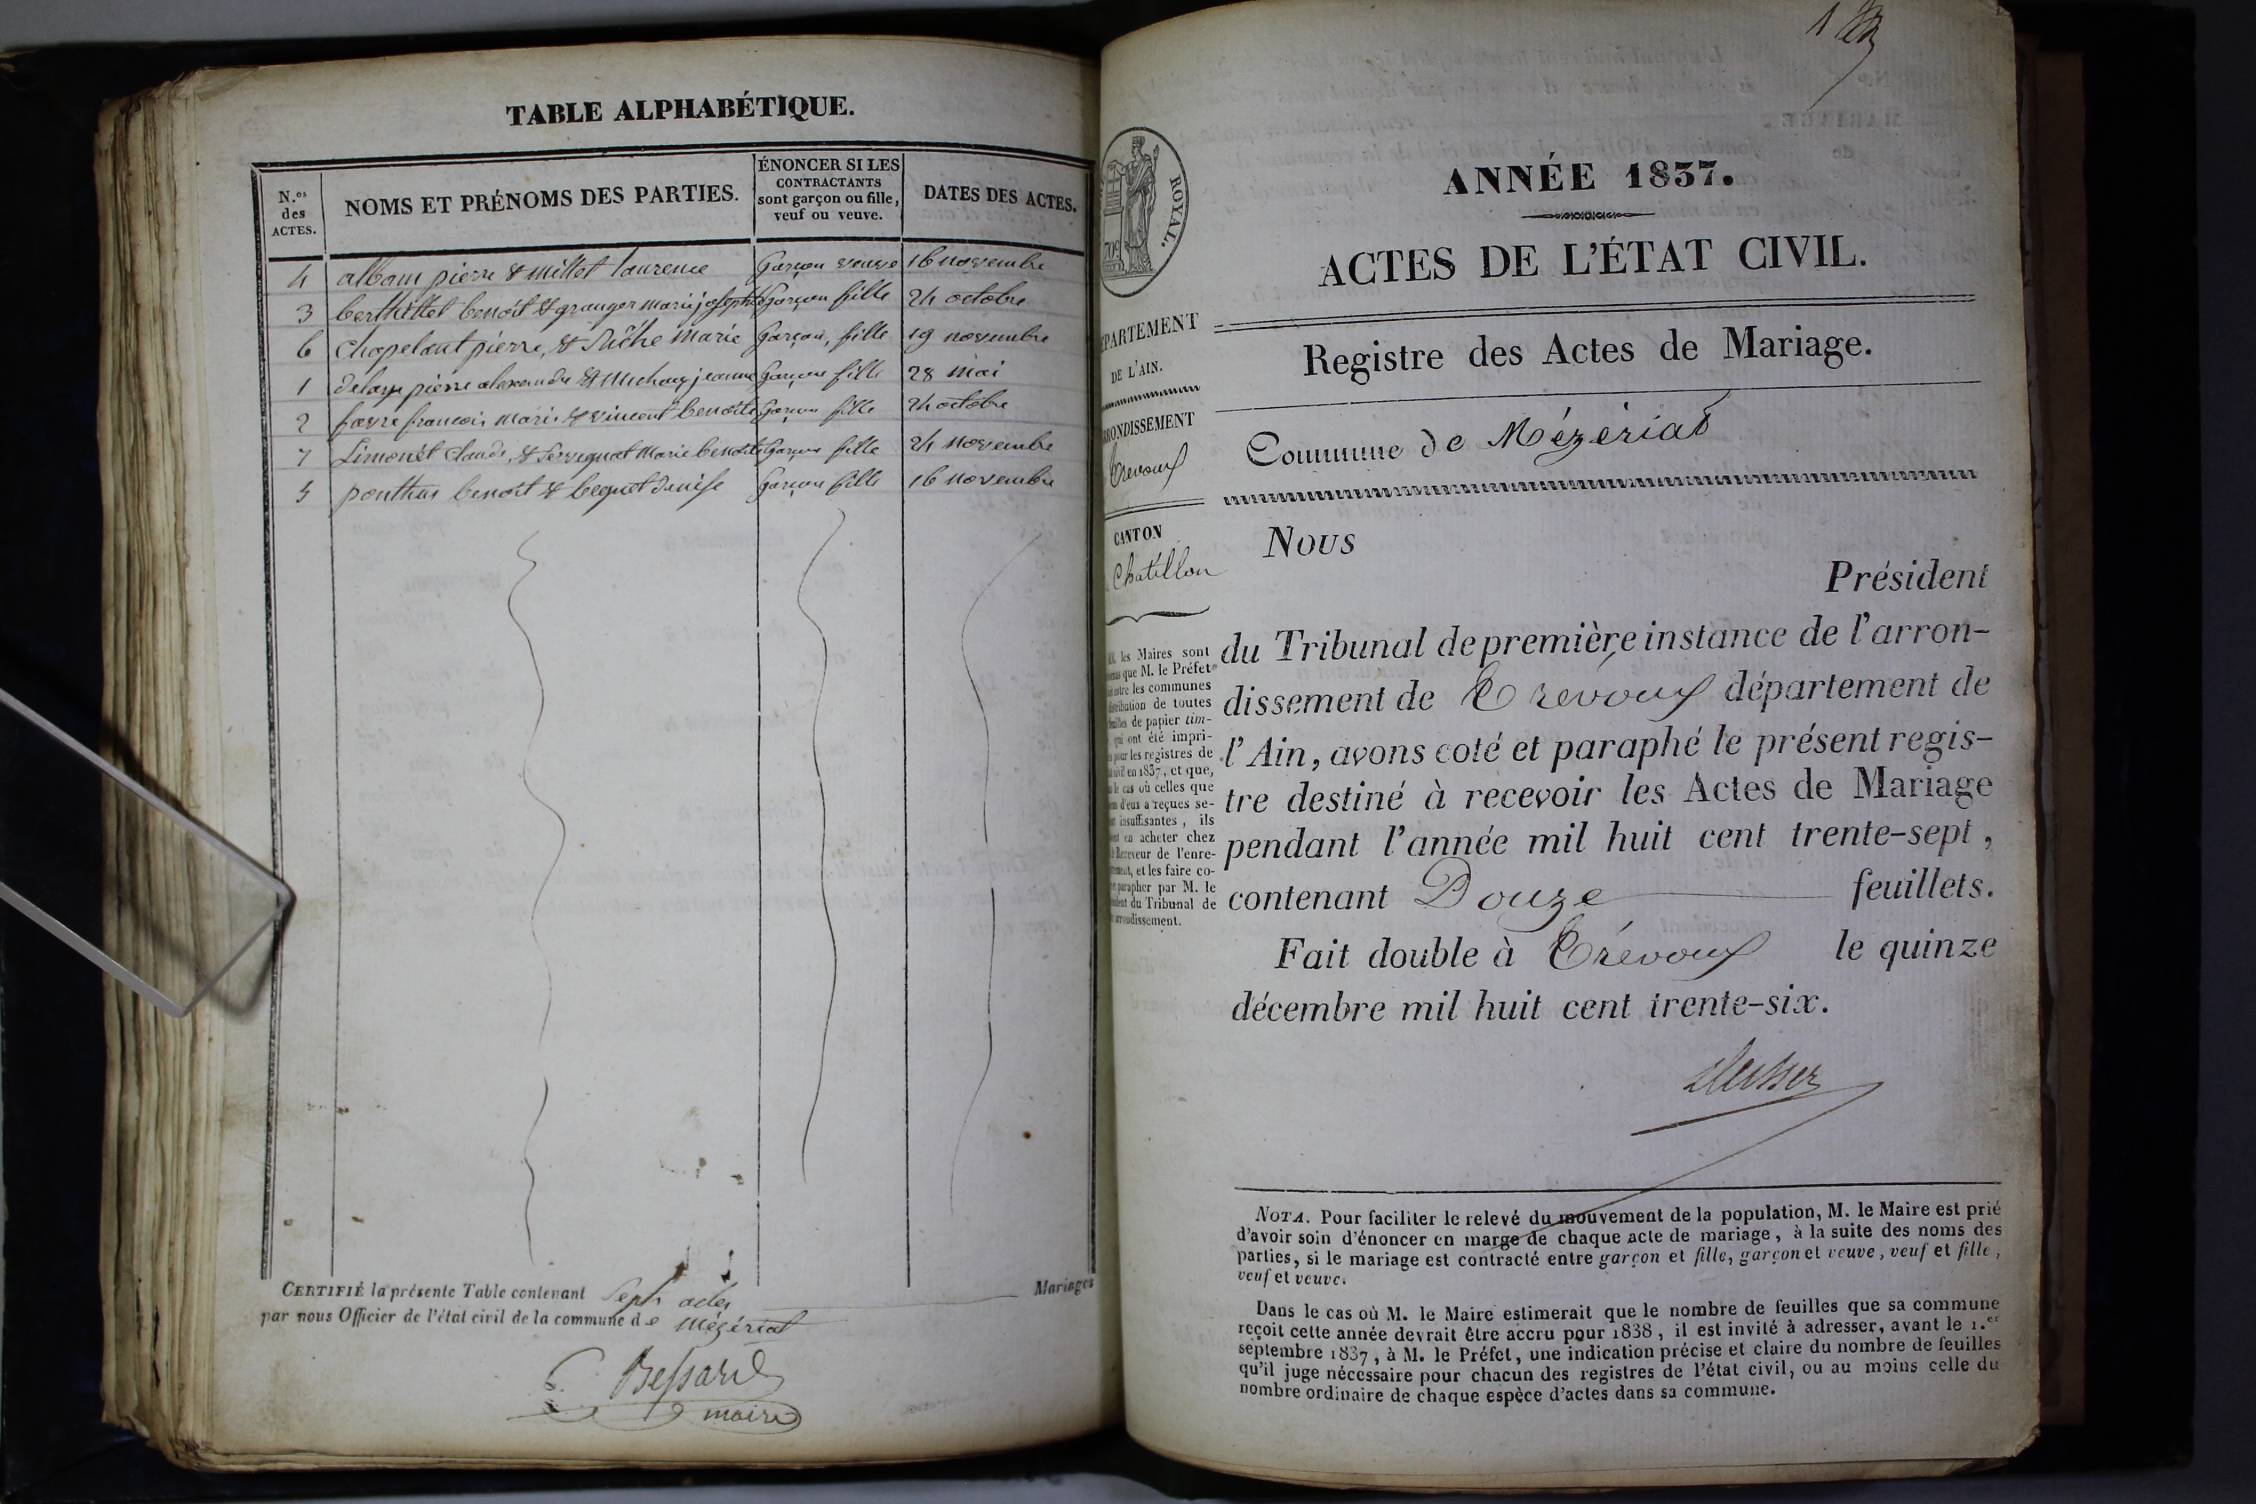 TABLE ALPHABÉTIQUE.
N.os des ACTES.
NOMS ET PRÉNOMS DES PARTIES.
ÉNONCER SI LES CONTRACTANTS sont garçon ou fille, veuf ou veuve.
DATES DES ACTES.
4 albam pierre & millet laurence Garçon veuve 16 novembre
3 berthillet benoît & granger marie josephte garçon fille 24 octobre
6 Chapelant pierre, & marie Garçon, fille 19 novembre
1 pierre alexandre & Michaux jeanne Garçon fille 28 mai
2 favre françois marie & vincent benoite Garçon fille 24 octobre
7 Limonet Claude, & Servignat Marie benoite Garçon fille 24 novembre
5 ponthus benoit & becquet denise Garçon fille 16 novembre
CERTIFIÉ la présente Table contenant Sept actes Mariages
par nous Officier de l'état civil de la commune de Mézériat
Bessard
maire
1
ROYAL.
ANNÉE 1837.
ACTES DE L'ÉTAT CIVIL.
DÉPARTEMENT
DE L'AIN.
Registre des Actes de Mariage.
ARRONDISSEMENT
Trevoux
Commune de Mézériat
CANTON
Chatillon
Nous
Président
du Tribunal de première instance de l'arron-
dissement de Trevoux département de
l'Ain, avons coté et paraphé le présent regis-
tre destiné à recevoir les Actes de Mariage
pendant l'année mil huit cent trente-sept,
contenant Douze feuillets.
Fait double à Trévoux le quinze
décembre mil huit cent trente-six.
les Maires sont
que M. le Préfet
entre les communes
distribution de toutes
feuilles de papier tim-
qui ont été impri-
pour les registres de
civil en 1837, et que,
le cas où celles que
d'eux a reçues se-
insuffisantes, ils
en acheter chez
Receveur de l'enre-
et les faire co-
parapher par M. le
Président du Tribunal de
arrondissement.
NOTA. Pour faciliter le relevé du mouvement de la population, M. le Maire est prié
d'avoir soin d'énoncer en marge de chaque acte de mariage, à la suite des noms des
parties, si le mariage est contracté entre garçon et fille, garçon et veuve, veuf et fille,
veuf et veuve.
Dans le cas où M. le Maire estimerait que le nombre de feuilles que sa commune
reçoit cette année devrait être accru pour 1838, il est invité à adresser, avant le 1.er
septembre 1837, à M. le Préfet, une indication précise et claire du nombre de feuilles
qu'il juge nécessaire pour chacun des registres de l'état civil, ou au moins celle du
nombre ordinaire de chaque espèce d'actes dans sa commune.